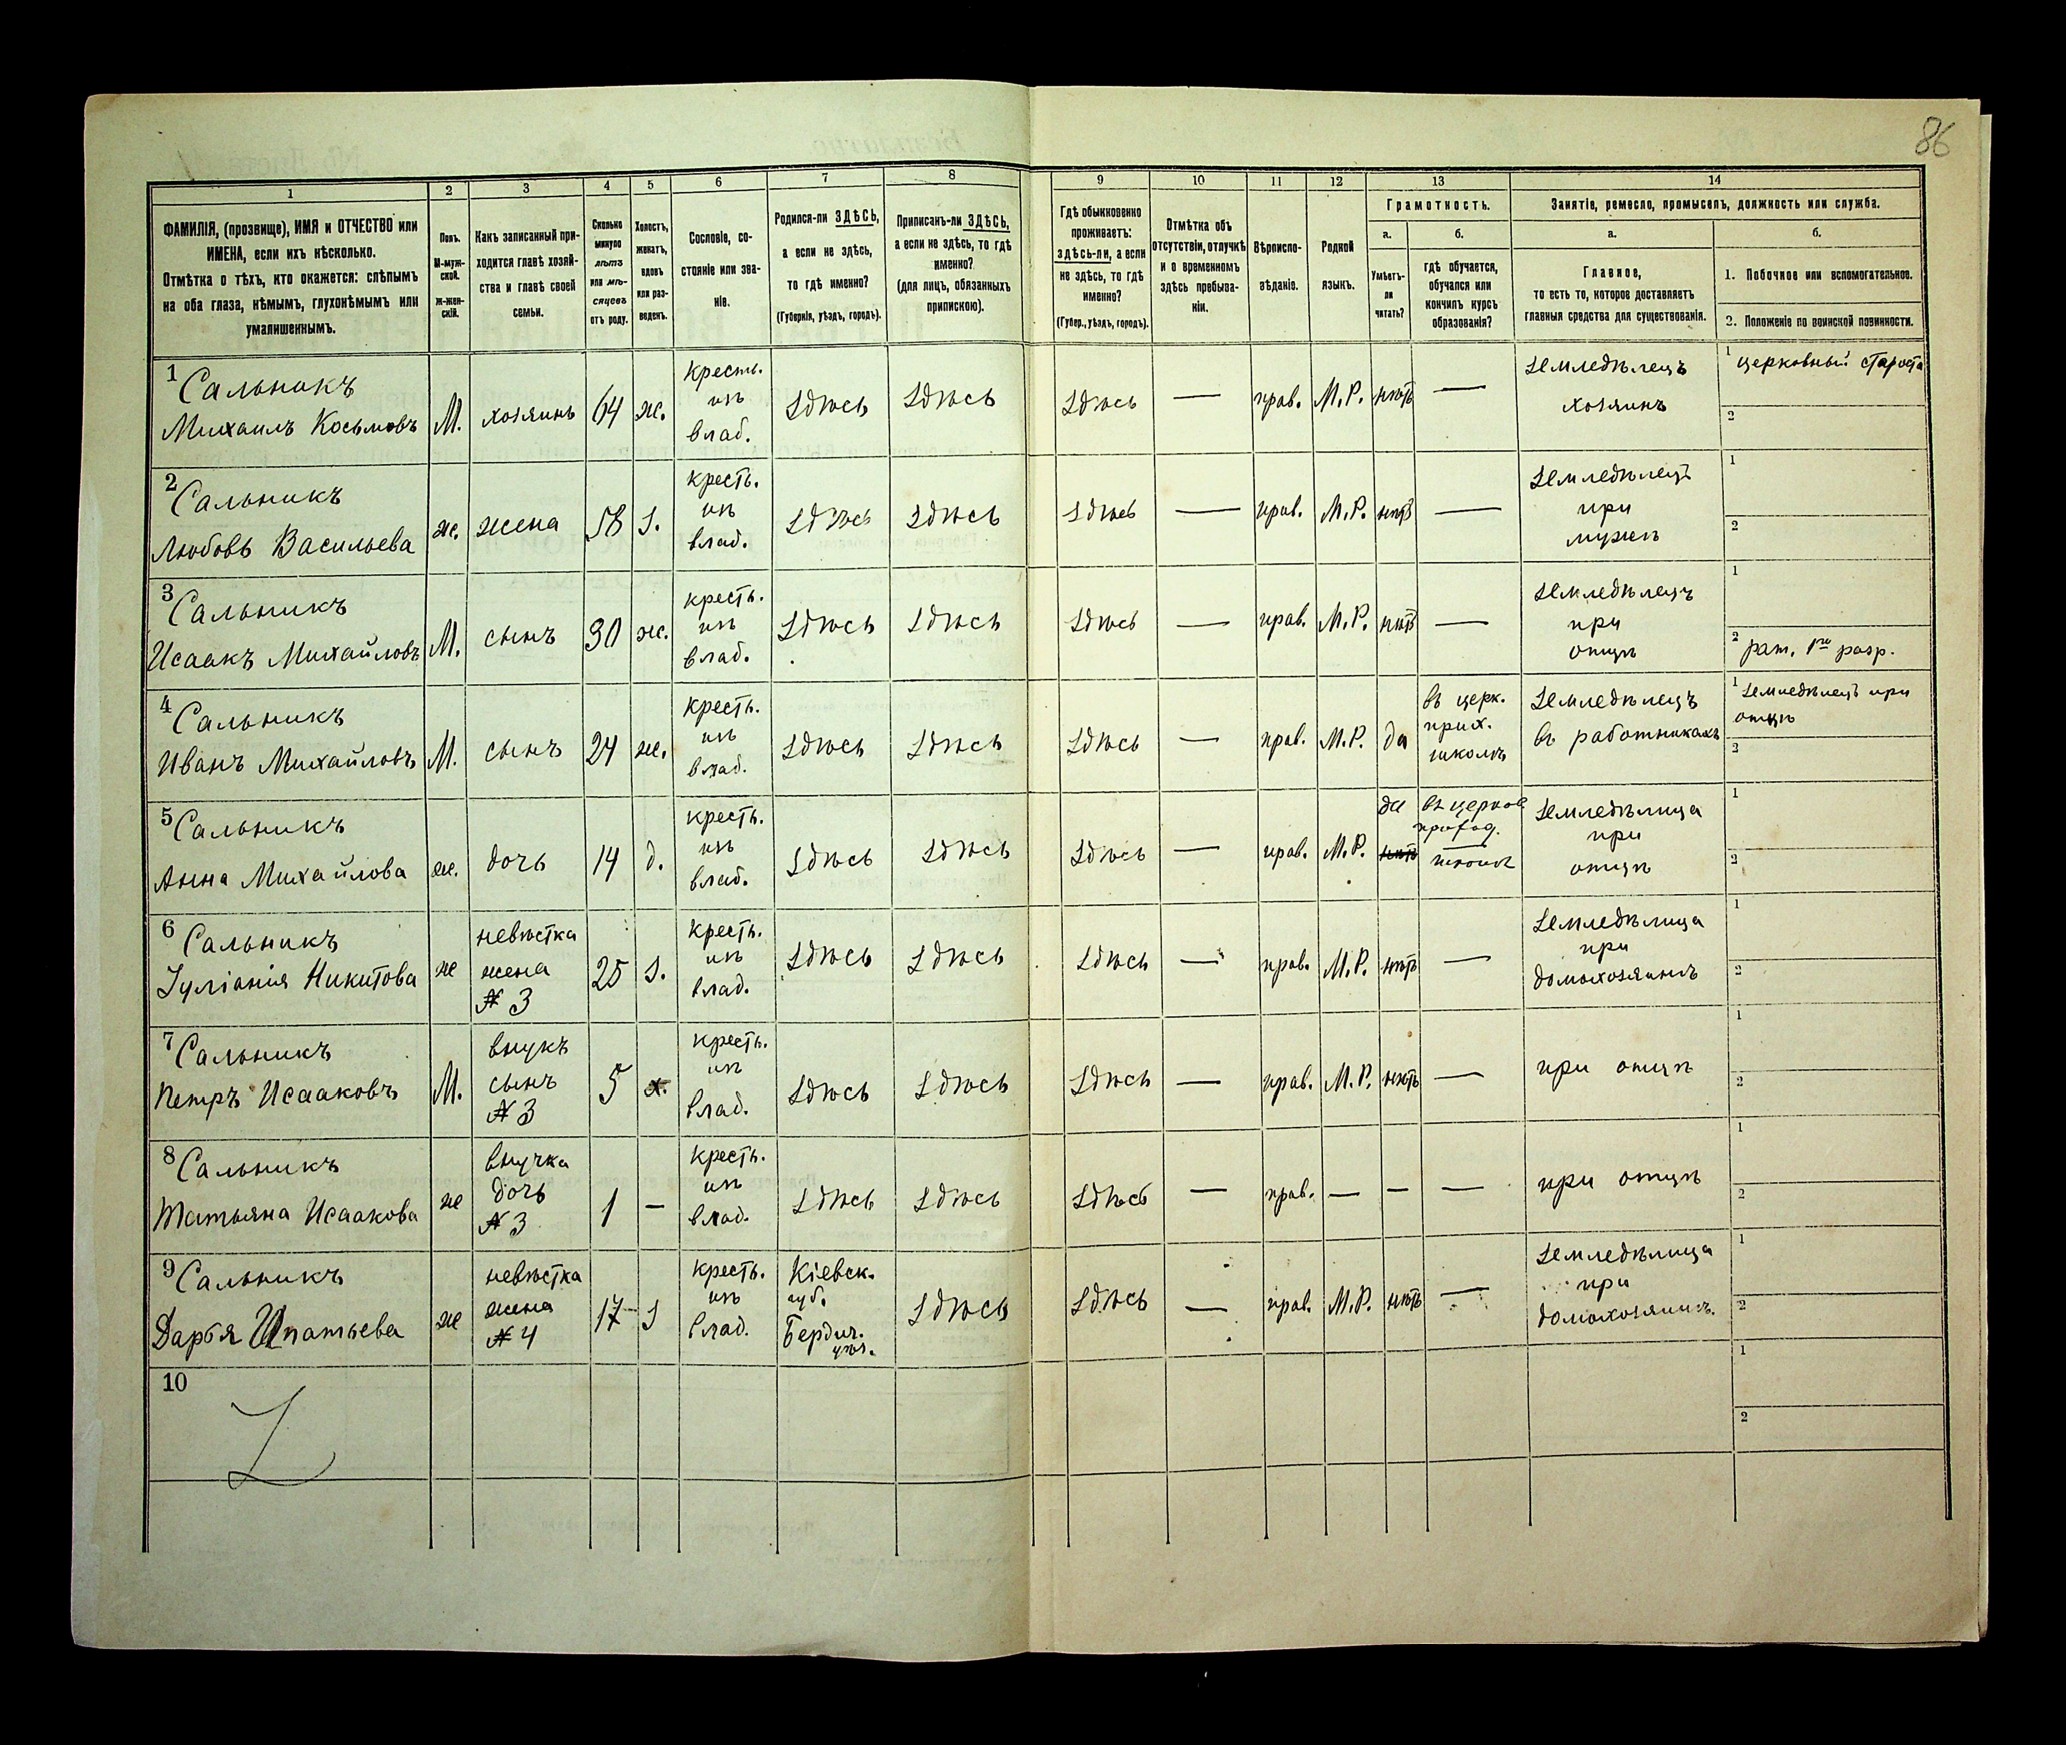 86
1 2 3 4 5 6 7 8 9 10 11 12 13 14
ФАМИЛІЯ, (прозвище), ИМЯ и ОТЧЕСТВО или
ИМЕНА, если ихъ нѣсколько.
Отмѣтка о тѣхъ, кто окажется: слѣпымъ
на оба глаза, нѣмымъ, глухонѣмымъ или
умалишеннымъ.
Полъ.
М-муж-
ской.
ж-жен-
скій.
Какъ записанный при-
ходится главѣ хозяй-
ства и главѣ своей
семьи.
Сколько
минуло
лѣтъ
или мѣ-
сяцевъ
отъ роду.
Холостъ,
женатъ,
вдовъ
или раз-
веденъ.
Сословіе, со-
стояніе или зва-
ніе.
Родился-ли ЗДѢСЬ,
а если не здѣсь,
то гдѣ именно?
(Губернія, уѣздъ, городъ).
Приписанъ-ли ЗДѢСЬ,
а если не здѣсь, то гдѣ
именно?
(для лицъ, обязанныхъ
припискою).
Гдѣ обыкновенно
проживаетъ:
здѣсь-ли, а если
не здѣсь, то гдѣ
именно?
(Губер., уѣздъ, городъ).
Отмѣтка объ
отсутствіи, отлучкѣ
и о временномъ
здѣсь пребыва-
ніи.
Вѣроиспо-
вѣданіе.
Родной
языкъ.
Грамотность.
а.
Умѣетъ-
ли
читать?
б.
гдѣ обучается,
обучался или
кончилъ курсъ
образованія?
Занятіе, ремесло, промыселъ, должность или служба.
а.
Главное,
то есть то, которое доставляетъ
главныя средства для существованія.
б.
1. Побочное или вспомогательное.
2. Положеніе по воинской повинности.
1 Сальникъ
Михаилъ Косьмовъ
М.
хозяинъ
64
ж.
кресть.
изъ
влад.
здѣсь
здѣсь
здѣсь
—
прав.
М.Р.
нѣтъ
—
земледѣлецъ
хозяинъ
1 церковный староста
2
2 Сальникъ
Любовь Васильева
ж.
жена
58
з.
кресть.
изъ
влад.
здѣсь
здѣсь
здѣсь
—
прав.
М.Р.
нѣтъ
—
земледѣлецъ
при
мужѣ
1
2
3 Сальникъ
Исаакъ Михайловъ
М.
сынъ
30
ж.
кресть.
изъ
влад.
здѣсь
здѣсь
здѣсь
—
прав.
М.Р.
нѣтъ
—
земледѣлецъ
при
отцѣ
1
2 рат. 1го разр.
4 Сальникъ
Иванъ Михайловъ
М.
сынъ
24
ж.
кресть.
изъ
влад.
здѣсь
здѣсь
здѣсь
—
прав.
М.Р.
да
въ церк.
прих.
школѣ
земледѣлецъ
въ работникахъ
1 земледѣлецъ при
отцѣ
2
5 Сальникъ
Анна Михайлова
ж.
дочь
14
д.
кресть.
изъ
влад.
здѣсь
здѣсь
здѣсь
—
прав.
М.Р.
да
нѣтъ
школѣ
земледѣлица
при
отцѣ
1
2
6 Сальникъ
Іуліанія Никитова
ж
невѣстка
жена
№ 3
25
з.
кресть.
изъ
влад.
здѣсь
здѣсь
здѣсь
—
прав.
М.Р.
нѣтъ
—
земледѣлица
при
домохозяинѣ
1
2
7 Сальникъ
Петръ Исааковъ
М.
внукъ
сынъ
№ 3
5
х.
кресть.
изъ
влад.
здѣсь
здѣсь
здѣсь
—
прав.
М.Р.
нѣтъ
—
при отцѣ
1
2
8 Сальникъ
Татьяна Исаакова
ж
внучка
дочь
№ 3
1
—
кресть.
изъ
влад.
здѣсь
здѣсь
здѣсь
—
прав.
—
—
—
при отцѣ
1
2
9 Сальникъ
Дарья Ипатьева
ж
невѣстка
жена
№ 4
17
з
кресть.
изъ
влад.
Кіевск.
губ.
Бердич.
уѣз.
здѣсь
здѣсь
—
прав.
М.Р.
нѣтъ
—
земледѣлица
при
домохозяинѣ
1
2
10
1
2